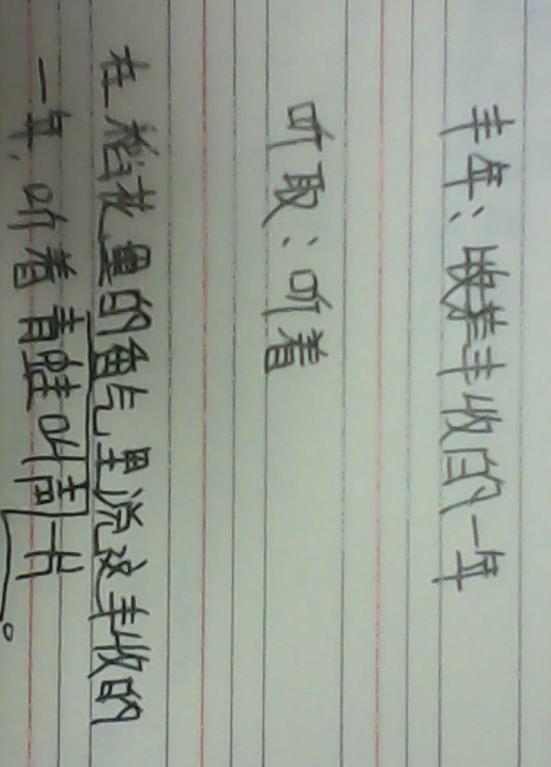 丰年：丰收的一年
听取：听着
在稻花里的香气里说这丰收的
一年，听着青蛙叫高一片。